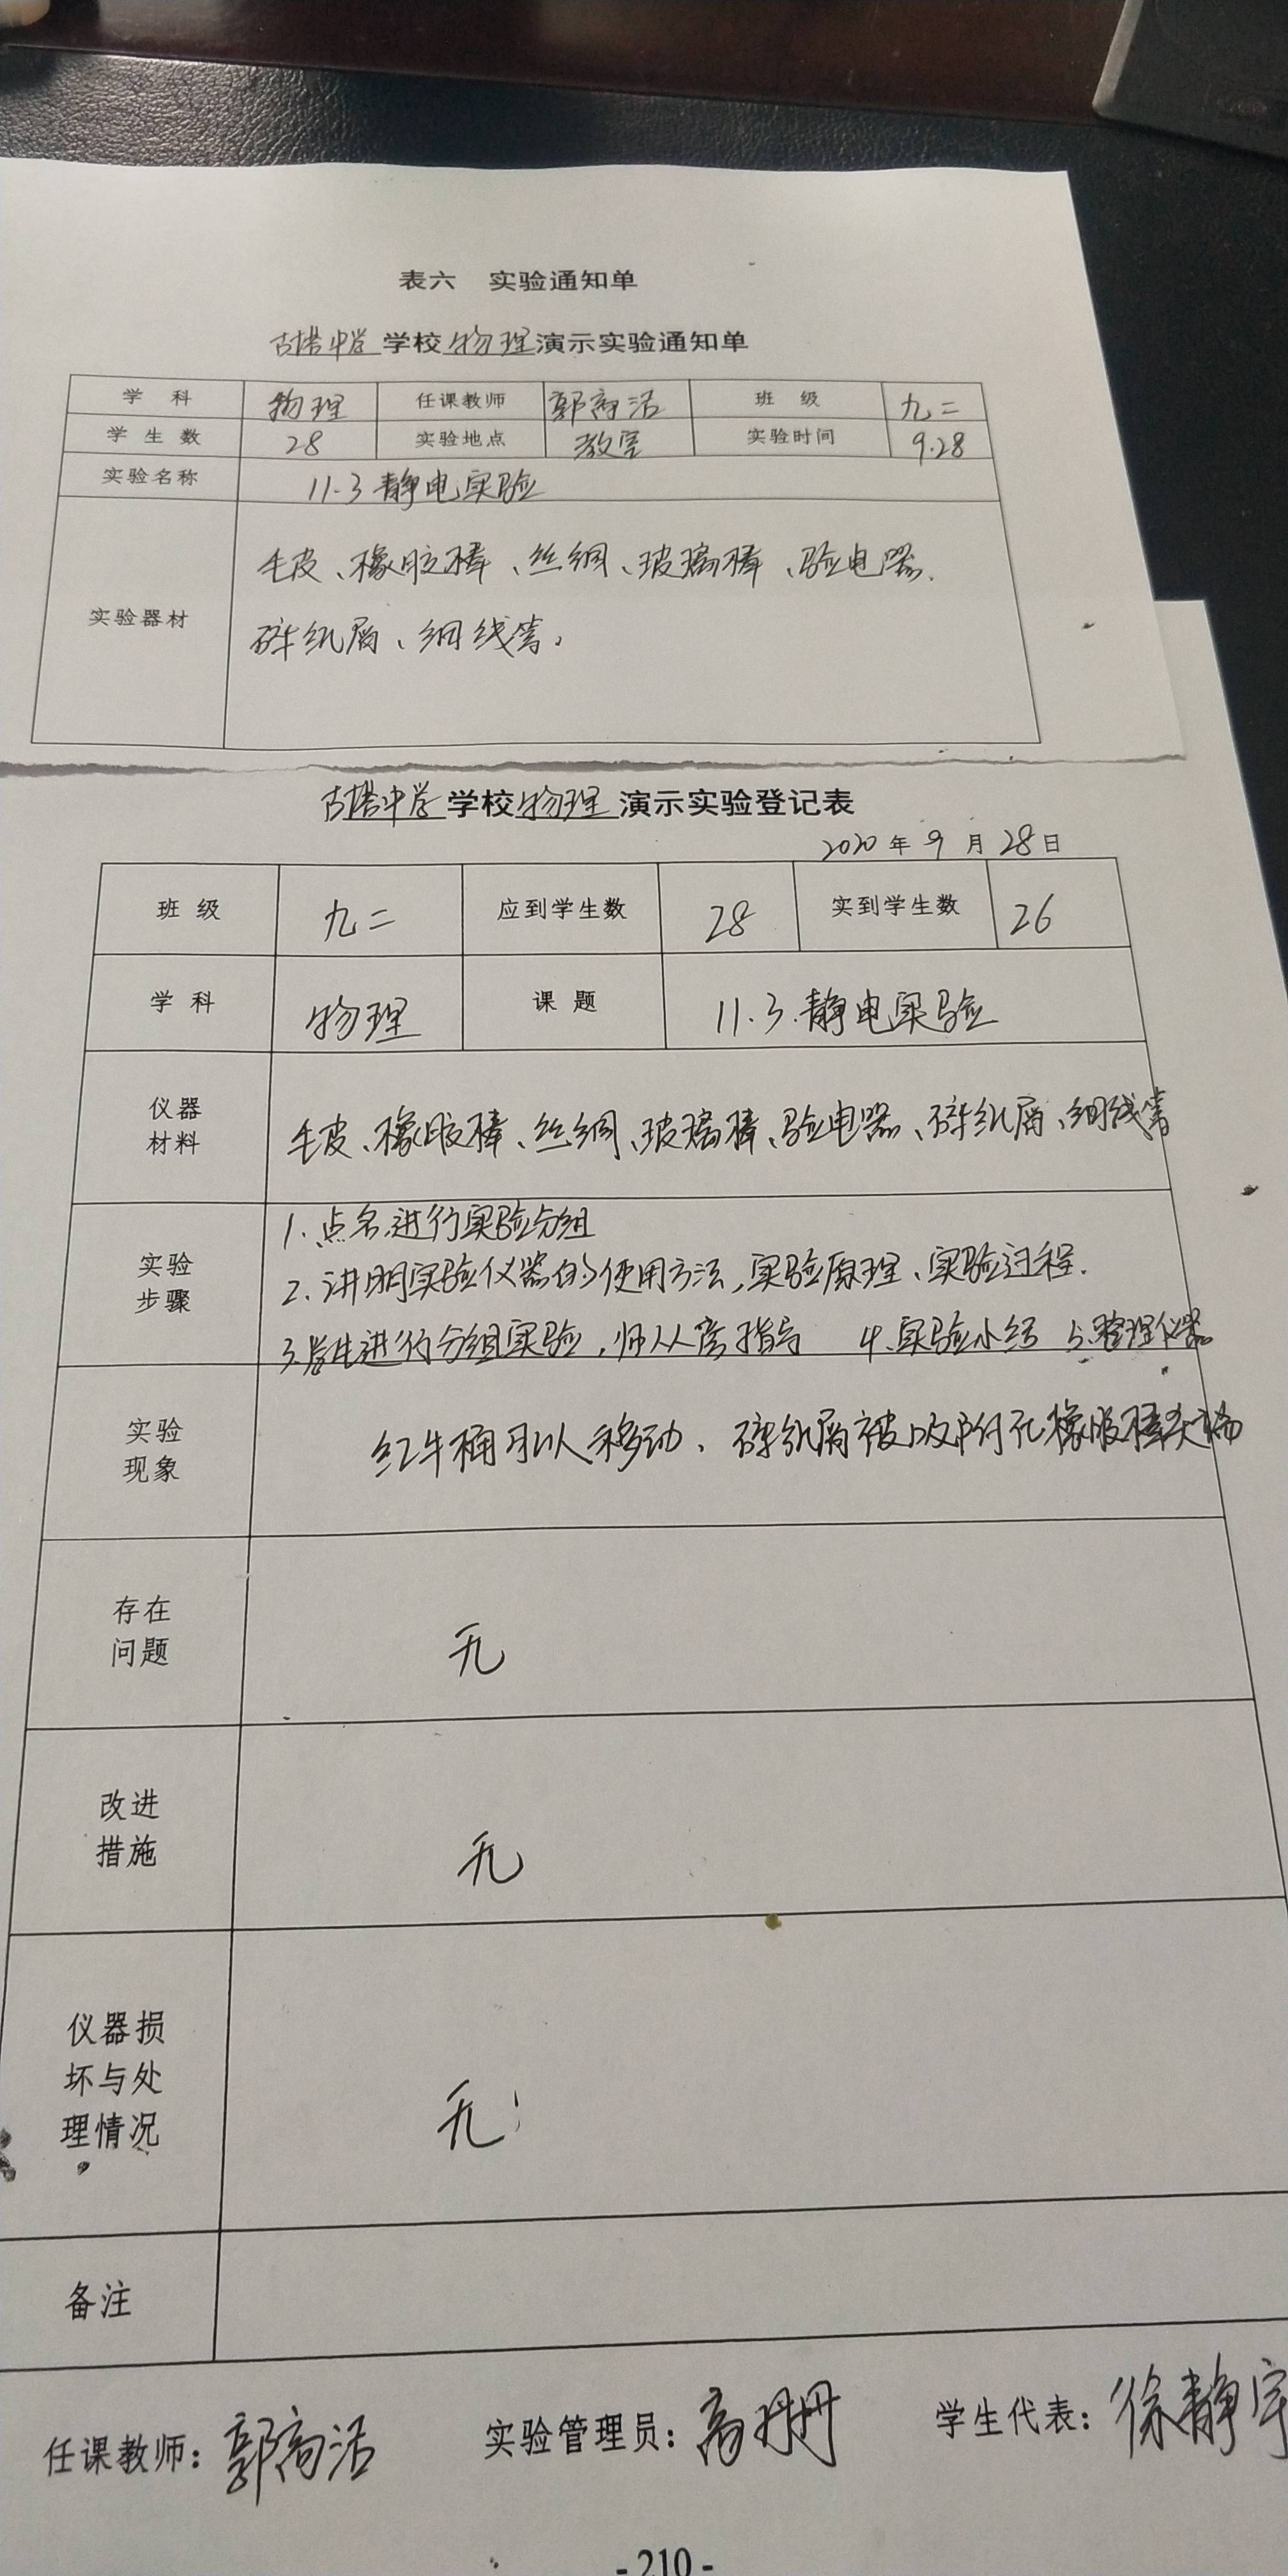 表六 实验通知单
古塔中学学校物理演示实验通知单
学科 物理 任课教师 郭高洁 班级 九二
学生数 28 实验地点 教室 实验时间 9.28
实验名称 11.3静电实验
实验器材
毛皮、橡胶棒、丝绸、玻璃棒、验电器、
碎纸屑、细线等。
古塔中学学校物理演示实验登记表
2020年9月28日
班级 九二 应到学生数 28 实到学生数 26
学科 物理 课题 11.3.静电实验
仪器
材料
毛皮、橡胶棒、丝绸、玻璃棒、验电器、碎纸屑、细线等
实验
步骤
1.点名,进行实验分组
2.讲明实验仪器的使用方法,实验原理、实验过程.
3.学生进行分组实验,师从旁指导 4.实验小结 5.整理仪器
实验
现象
红牛桶可以移动、碎纸屑被吸附在橡胶棒尖端
存在
问题
无
改进
措施
无
仪器损
坏与处
理情况
无
备注
任课教师:郭高洁 实验管理员:高丹丹 学生代表:徐静宇
-210-